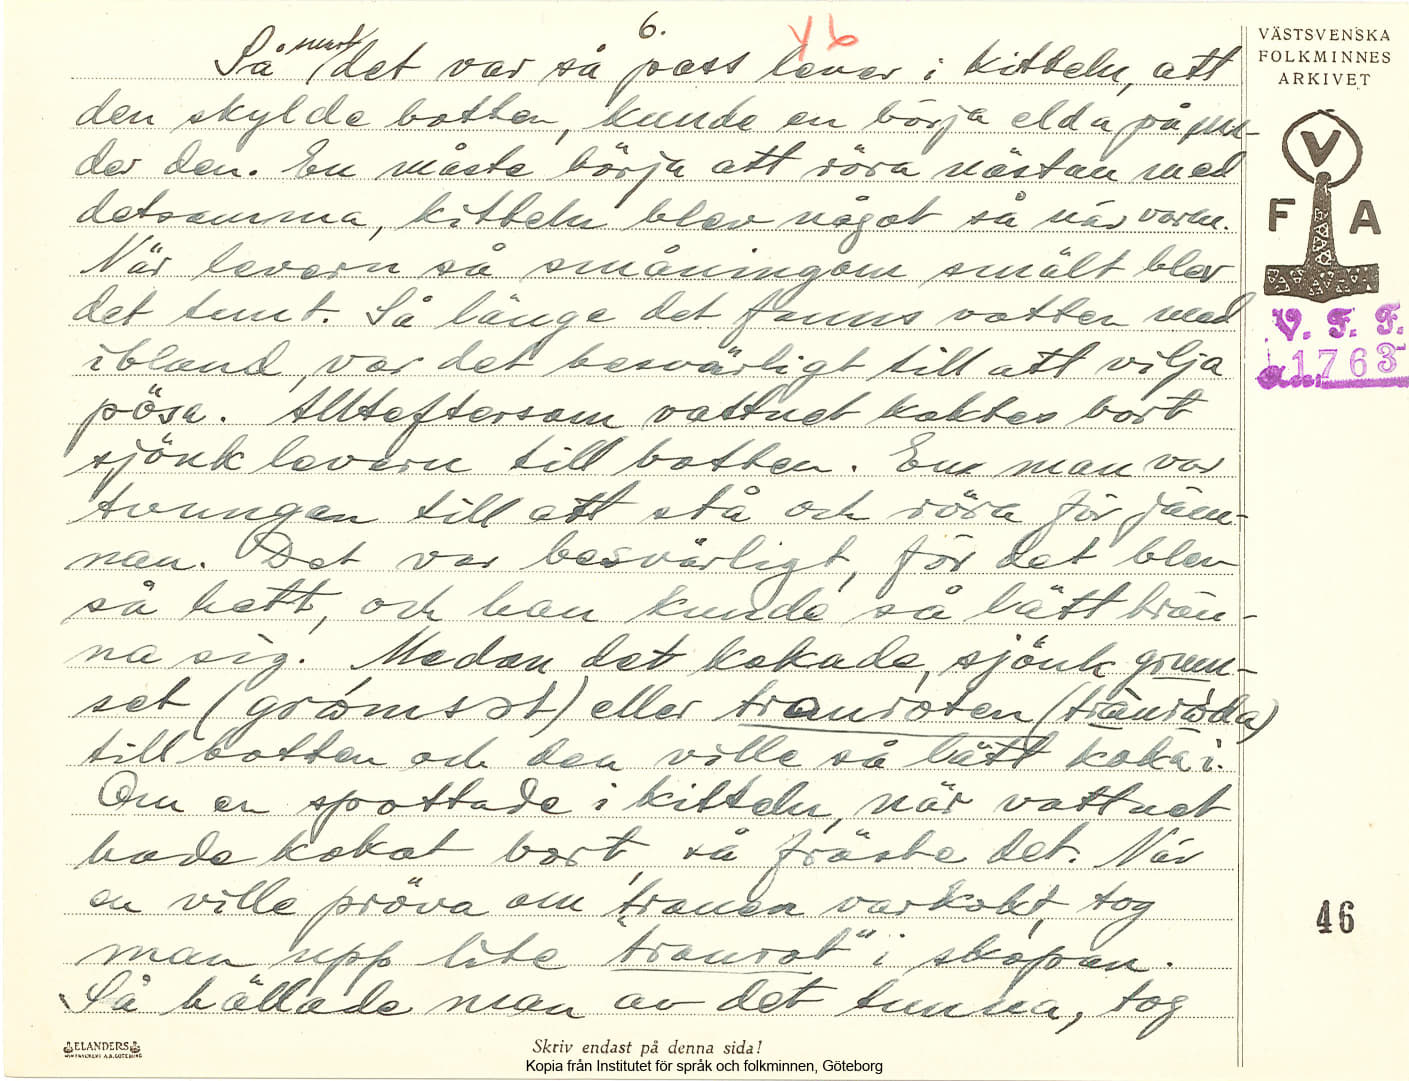 6.
46
Så snart det var så pass lever i kitteln, att
den skylde botten, kunde en börja elda på un-
der den. En måste börja att röra nästan med
detsamma, kitteln blev något så när varm.
När levern så småningom smält blev
det tunt. Så länge det fanns vatten med
ibland, var det besvärligt till att vilja
pösa. Allteftersom vattnet koktes bort
sjönk levern till botten. En man var
tvungen till att stå och röra för jäm-
nan. Det var besvärligt, för det blev
så hett, och han kunde så lätt brän-
na sig. Medan det kokade, sjönk grum-
set (grómsət) eller tranroten (trànróda)
till botten och den ville så lätt koka i.
Om en spottade i kitteln, när vattnet
hade kokat bort, så fräste det. När
en ville pröva om tranen var kokt, tog
man upp lite "tranrot" i skopan.
Så hällade man av det tunna, tog
VÄSTSVENSKA
FOLKMINNES
ARKIVET
V
F A
V. F. F.
1763
46
ELANDERS
Skriv endast på denna sida!
Kopia från Institutet för språk och folkminnen, Göteborg